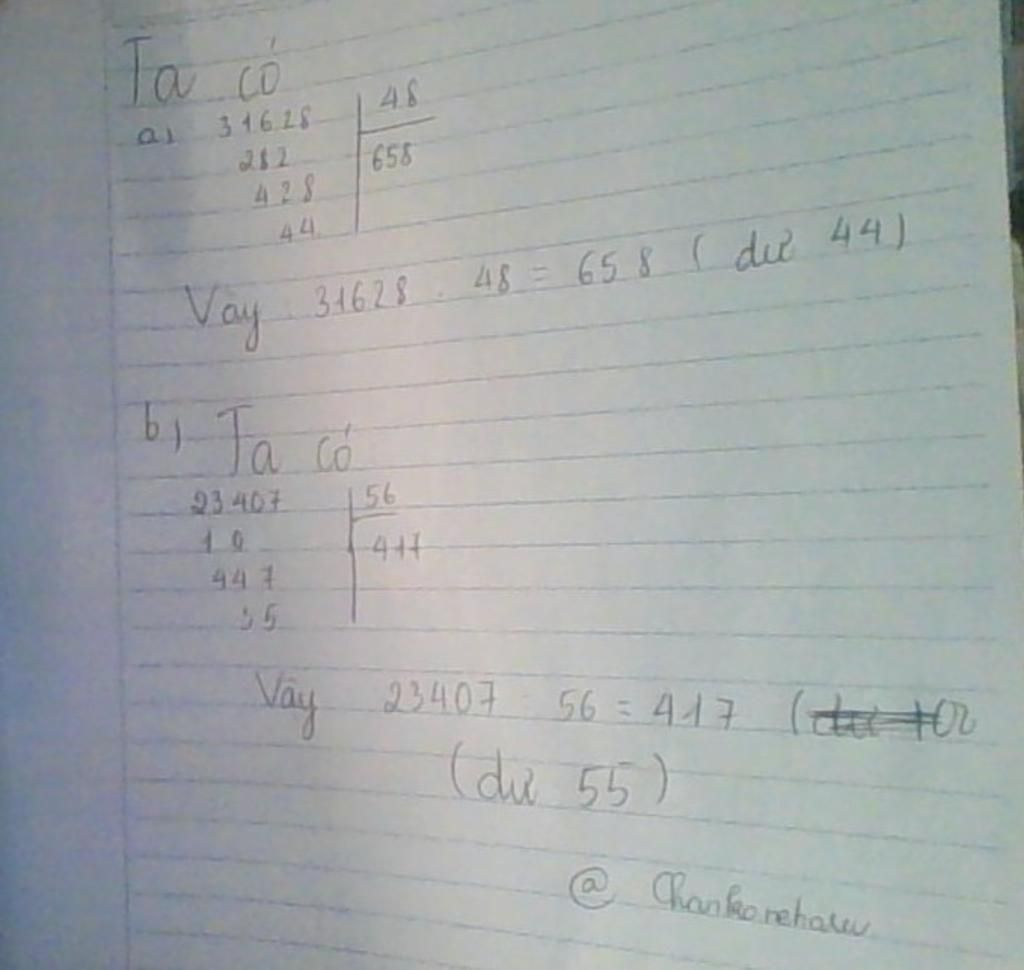 Ta có
a) 31628 48
282 658
428
44
Vậy 31628 : 48 = 658 ( dư 44)
b) Ta có
23407 56
10 417
447
55
Vậy 23407 56 = 417 (
(dư 55)
@